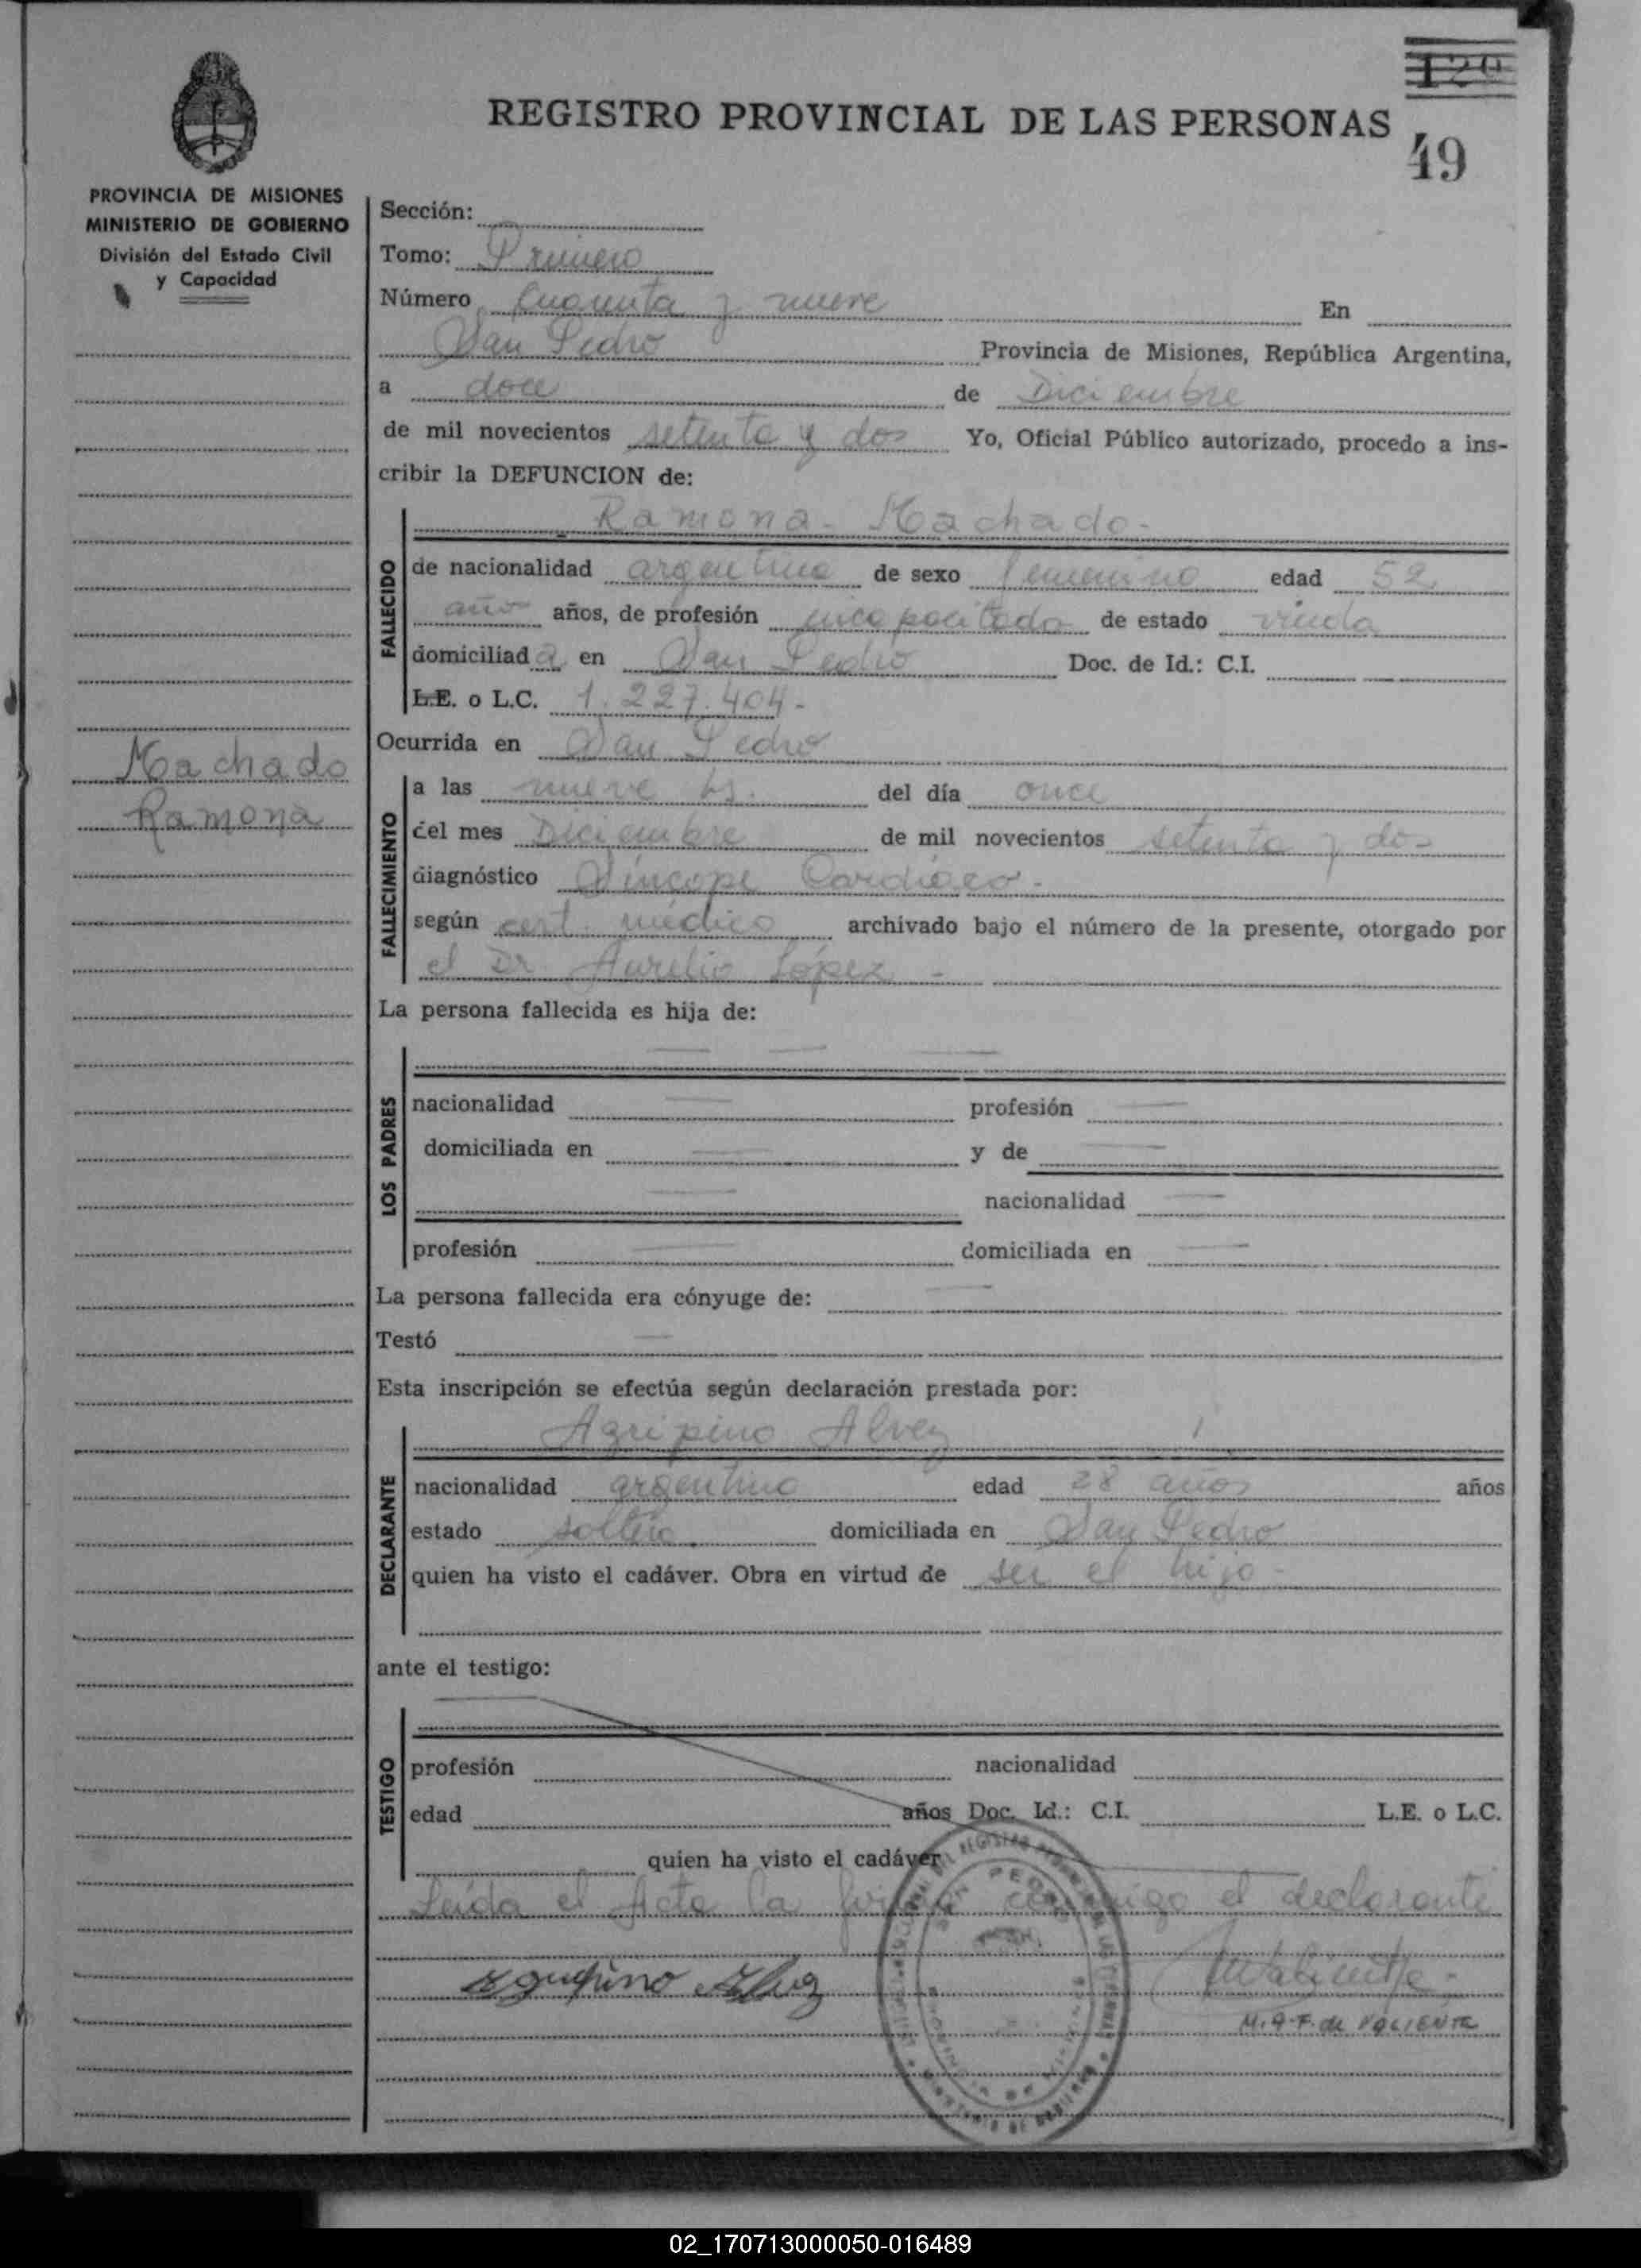 120
REGISTRO PROVINCIAL DE LAS PERSONAS
49
PROVINCIA DE MISIONES
MINISTERIO DE GOBIERNO
División del Estado Civil
y Capacidad
Sección:
Tomo: Primero
Número Cuarenta y nueve En
San Pedro Provincia de Misiones, República Argentina,
a doce de Diciembre
de mil novecientos setenta y dos Yo, Oficial Público autorizado, procedo a ins-
cribir la DEFUNCION de:
Ramona - Machado -
FALLECIDO
de nacionalidad argentina de sexo femenino edad 52
años años, de profesión incapacitada de estado viuda
domiciliad a en San Pedro Doc. de Id.: C.I.
L.E. o L.C. 1.227.404 -
Machado
Ramona
Ocurrida en San Pedro
FALLECIMIENTO
a las nueve hs. del día once
del mes Diciembre de mil novecientos setenta y dos
diagnóstico Síncope Cardíaco -
según cert. médico archivado bajo el número de la presente, otorgado por
el Dr. Aurelio López -
La persona fallecida es hija de:
LOS PADRES
nacionalidad profesión
domiciliada en y de
nacionalidad
profesión domiciliada en
La persona fallecida era cónyuge de:
Testó
Esta inscripción se efectúa según declaración prestada por:
Agripino Alvez
DECLARANTE
nacionalidad argentino edad 28 años años
estado soltero domiciliada en San Pedro
quien ha visto el cadáver. Obra en virtud de ser el hijo -
ante el testigo:
TESTIGO
profesión nacionalidad
edad años Doc. Id.: C.I. L.E. o L.C.
quien ha visto el cadáver
Leída el Acta la firma conmigo el declarante
SAN PEDRO
Agripino Alvez
M. A. F. de VALIENTE
02_170713000050-016489